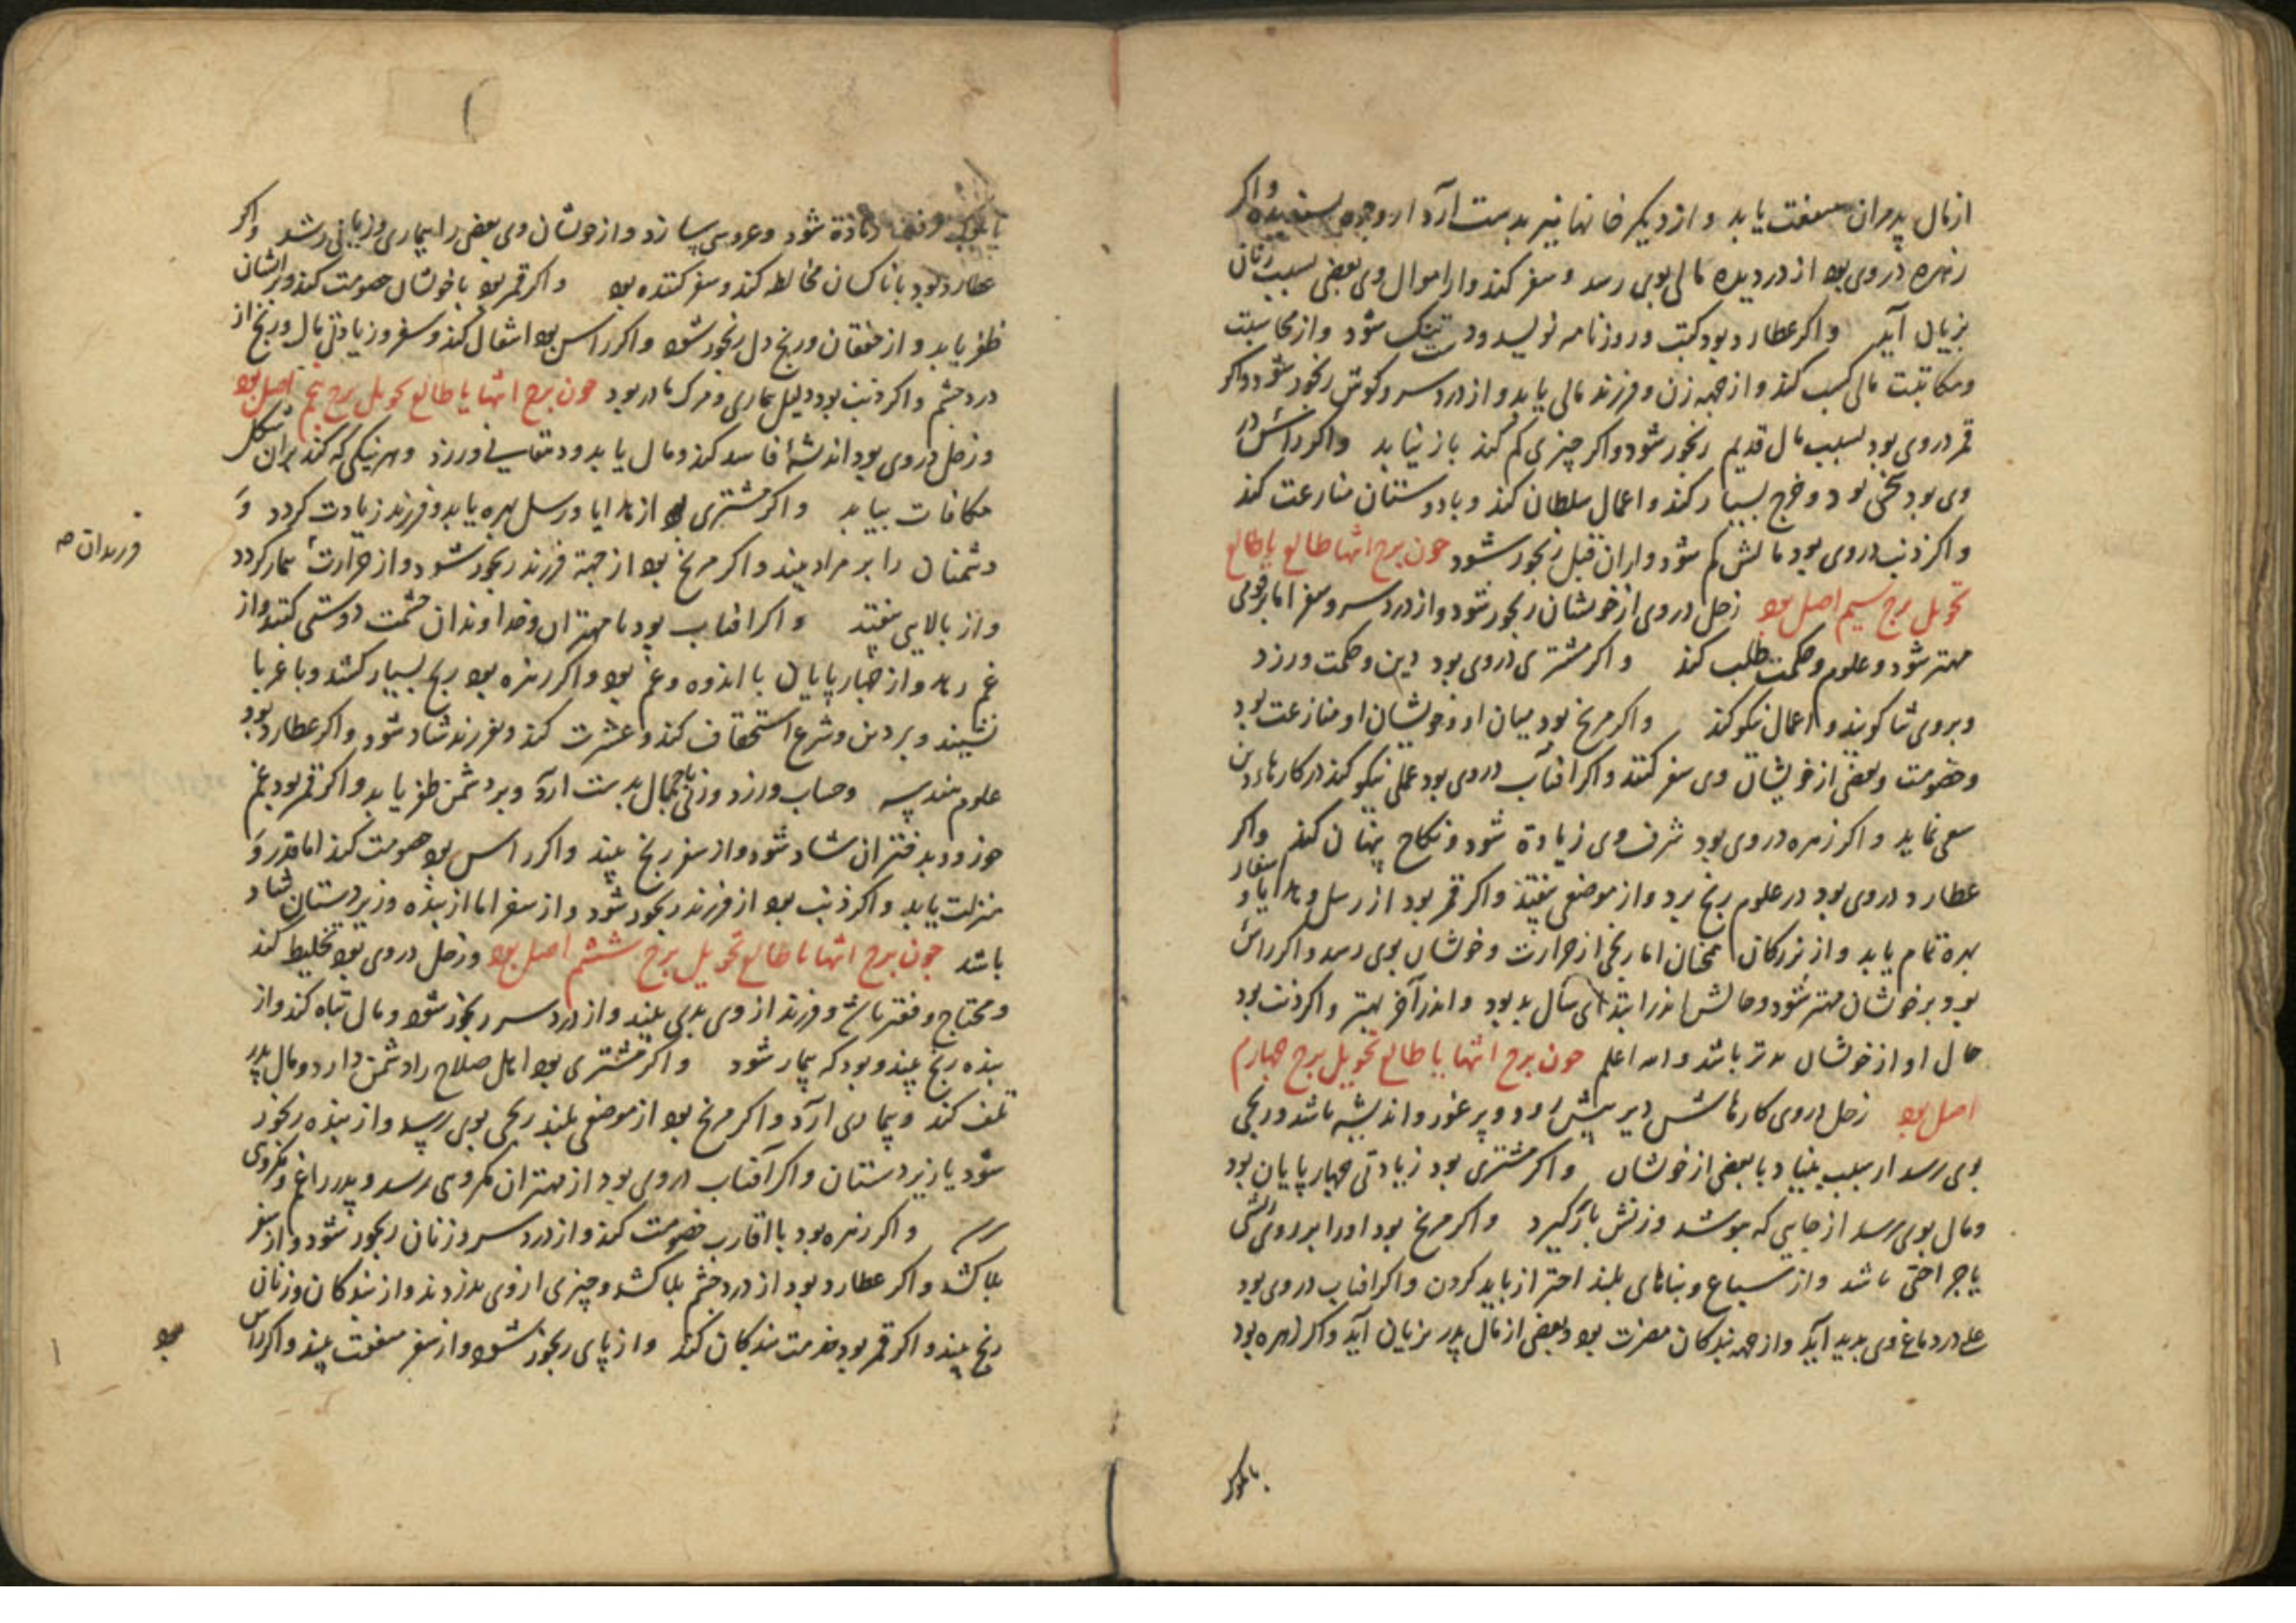 از مال پدران منفعت یابد و از دیگر خانها نیز بدست آرد از وجوه پسندیده و اکر
زهره در وی بود از دردیده مالی بوی رسد و سفر کند و از اموال وی بعضی بسبب زنان
بزیان آید و اکر عطارد بود کتب و روزنامه نویسد و شود و از محاسبت
و مکاتبت مالی کسب کند و از جهه زن و فرزند مالی یابد و از درد سر و کوش رنجور شود و اکر
قمر در وی بود بسبب مال قدیم رنجور شود و اکر چیزی کم کند باز نیابد و اکر راس در
وی بود سخی بود و خرج بسیار کند و اعمال سلطان کند و با دوستان منازعت کند
و اکر ذنب در وی بود مالش کم شود و از ان قبل رنجور شود چون برج انتها طالع یا طالع
تحویل برج سیم اصل بود زحل در وی از خویشان رنجور شود و از درد سر و سفر اما بر قومی
مهتر شود و علوم و حکمت طلب کند و اکر مشتری در وی بود دین و حکمت ورزد
و بروی ثنا کویند و اعمال نیکو کند و اکر مریخ بود میان او و خویشان او منازعت بود
و خصومت و بعضی از خویشان وی سفر کنند و اکر افتاب در وی بود عملی نیکو کند در کارهاء دین
سعی نماید و اکر زهره در وی بود شرف وی زیادة شود و نکاح پنهان کند و اکر
عطارد در وی بود در علوم رنج برد و از موضعی بیفتد و اکر قمر بود از رسل و هدایا و اسفار
بهره تمام یابد و از بزرکان امتحان اما رنجی از حرارت و خوشان بوی رسد و اکر راس
بود بر خوشان مهتر شود و حالش اندر ابتدای سال بد بود و اندر آخر بهتر و اکر ذنب بود
حال او از خوشان بدتر باشد والله اعلم چون برج انتها یا طالع تحویل برج چهارم
اصل بود زحل در وی کارهاش دیر پیش رود و پر غور و اندیشه باشد و رنجی
بوی رسد از سبب بنیاد با بعضی از خوشان و اکر مشتری بود زیادتی چهارپایان بود
و مال بوی رسد از جایی که بوشد و زنش بار کیرد و اکر مریخ بود او را بر روی ریشی
یا جراحتی باشد و از سباع و بناهای بلند احتراز باید کردن و اکر افتاب در وی بود
علی در دماغ وی پدید آید و از جهه بندکان مضرت بود و بعضی از مال پدر بزیان آید و اکر زهره بود
زیادة شود و عروسی سازد و از خوشان وی بعضی را بیماری و زیانی رسد و اکر
عطارد بود با ناکسان مخالطه کند و سفر کننده بود و اکر قمر بود با خوشان خصومت کند و بر ایشان
ظفر یابد و از خفقان و رنج دل رنجور شود و اکر راس بود انتقال کند و سفر و زیادتی مال و رنج از
درد چشم و اکر ذنب بود دلیل بیماری و مرک مادر بود چون برج انتها یا طالع تحویل برج پنجم اصل بود
و زحل در وی بود اندیشهٔ فاسد کند و مال یابد و دهقانی ورزد و هر نیکی که کند بران شکل
مکافات بیابد و اکر مشتری بود از هدایا و رسل بهره یابد و فرزند زیادت کردد و
دشمنان را بر مراد بیند و اکر مریخ بود از جهة فرزند رنجور شود و از حرارت بیمار کردد
و از بالایی بیفتد و اکر افتاب بود با مهتران و خداوندان حشمت دوستی کند و از
غم رهد و از چهارپایان با اندوه و غم بود و اکر زهره بود رنج بسیار کشد و با غربا
نشیند و بر دین و شرع استخفاف کند و عشرت کند و بفرزند شاد شود و اکر عطارد بود
علوم هندسه و حساب ورزد و زنی با جمال بدست ارد و بر دشمن ظفر یابد و اکر قمر بود غم
خورد و بدختران شاد شود و از سفر رنج بیند و اکر راس بود خصومت کند اما قدر و
منزلت یابد و اکر ذنب بود از فرزند رنجور شود و از سفر اما از بنده و زیردستان شاد
باشد چون برج انتها یا طالع تحویل برج ششم اصل بود و زحل در وی بود تخلیط کند
و محتاج و فقیر باشد و فرزند از وی بدی بیند و از درد سر رنجور شود و مال تباه کند و از
بنده رنج بیند و بود که بیمار شود و اکر مشتری بود اهل صلاح را دشمن دارد و مال پدر
تلف کند و بیماری ارد و اکر مریخ بود از موضعی بلند رنجی بوی رسد و از بنده رنجور
شود یا زیردستان و اکر آفتاب در وی بود از مهتران مکروهی رسد و پدر را غم و مکروهی
رسد و اکر زهره بود با اقارب خصومت کند و از درد سر و زنان رنجور شود و از سفر
بلا کشد و اکر عطارد بود از درد چشم بلا کشد و چیزی از وی بدزدند و از بندکان و زنان
رنج بیند و اکر قمر بود خدمت بندکان کند و از پای رنجور شود و از سفر منفعت بیند و اکر راس
فرزندان صه
بود